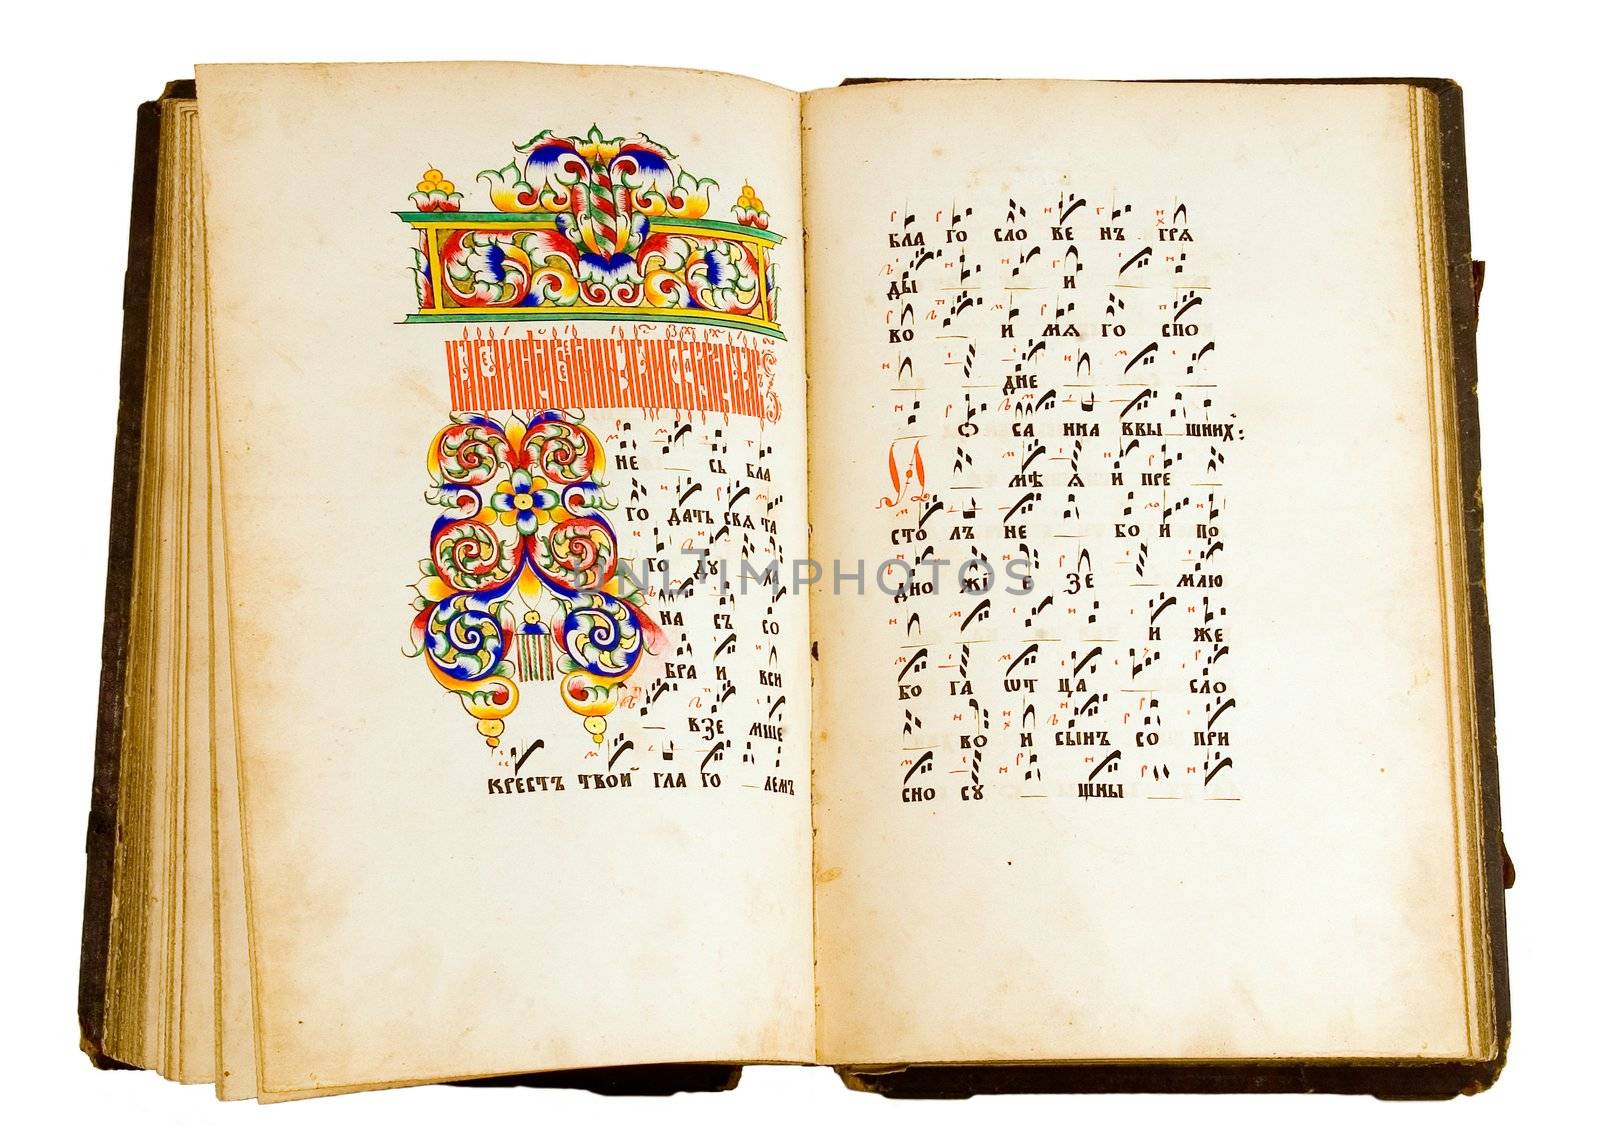 НЕ СЬ БЛА
ГО ДАТЬ СВЯ ТА
ГО ДУ ХА
НА СЪ СО
БРА И ВСИ
ВЗЕ МШЕ
КРЕСТЪ ТВОЙ ГЛА ГО ЛЕМЪ
БЛА ГО СЛО ВЕ НЪ ГРЯ
ДЫ И
ВО И МЯ ГО СПО
ДНЕ
О СА ННА ВВЫ ШНИХ:
И МѢ Я И ПРЕ
СТО ЛЪ НЕ БО И ПО
ДНО ЖІ Е ЗЕ МЛЮ
И ЖЕ
БО ГА ѾТ ЦА СЛО
ВО И СЫНЪ СО ПРИ
СНО СУ ЩНЫ
UNLIMPHOTOS